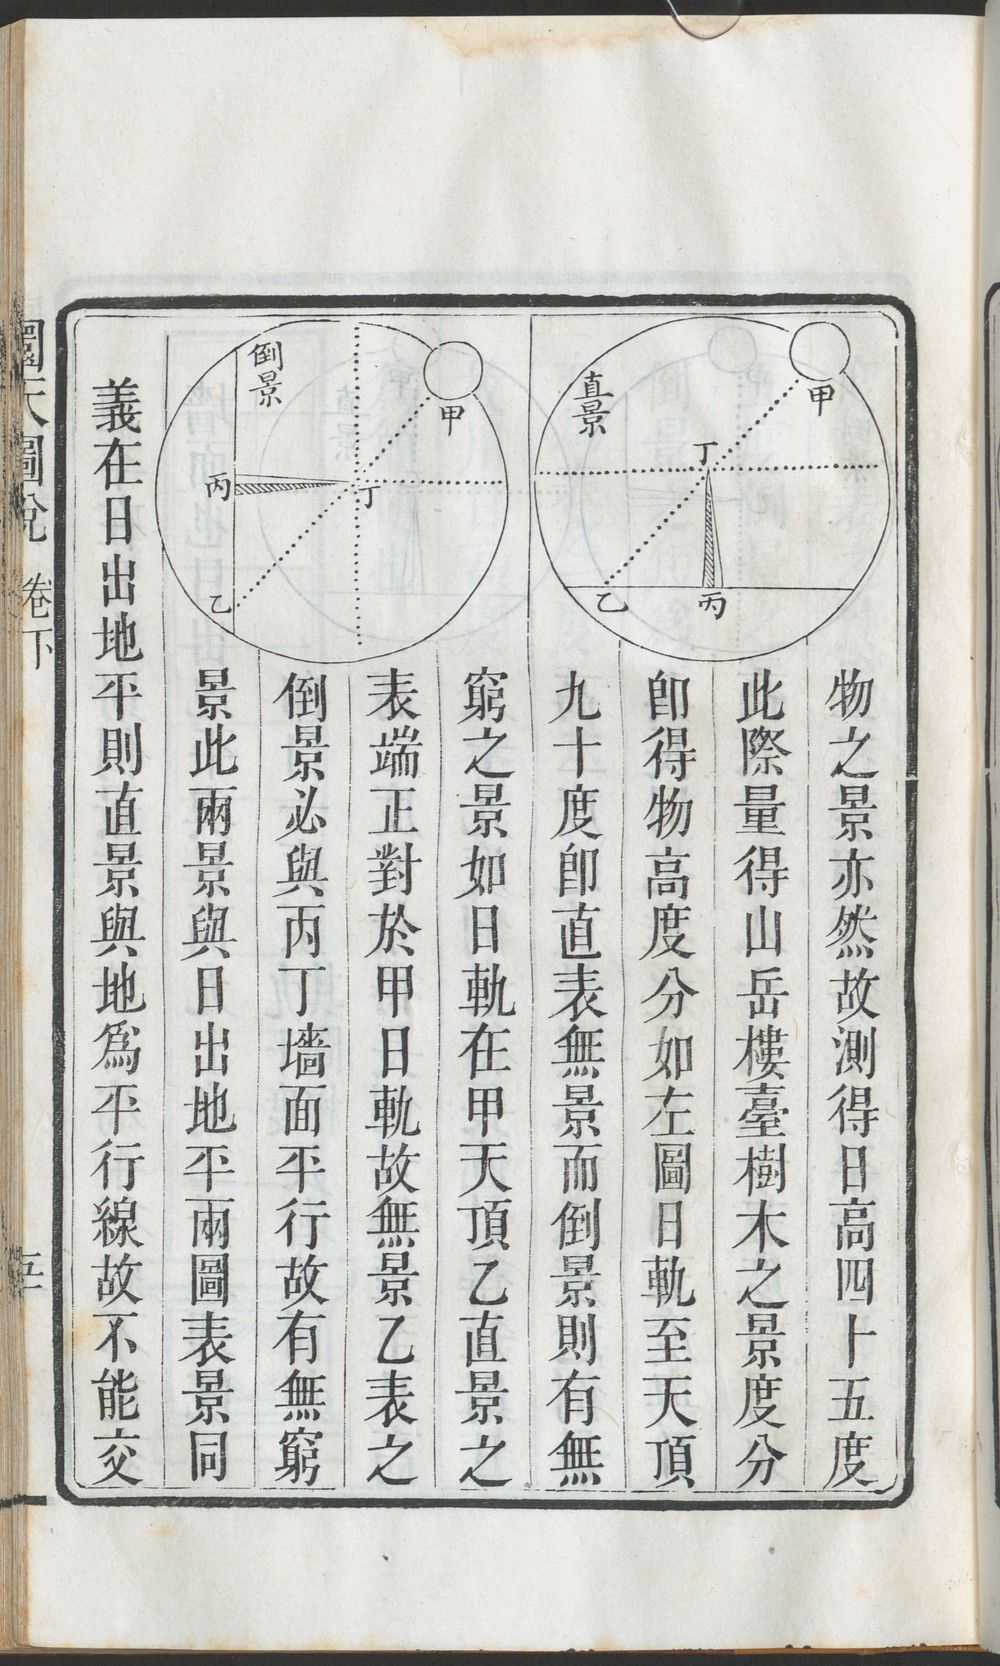 甲
直景
丁
乙
丙
甲
倒景
丙
丁
乙
物之景亦然故測得日高四十五度
此際量得山岳樓臺樹木之景度分
卽得物高度分如左圖日軌至天頂
九十度卽直表無景而倒景則有無
窮之景如日軌在甲天頂乙直景之
表端正對於甲日軌故無景乙表之
倒景必與丙丁墻面平行故有無窮
景此兩景與日出地平兩圖表景同
義在日出地平則直景與地爲平行線故不能交
圜天圖說 卷下
五